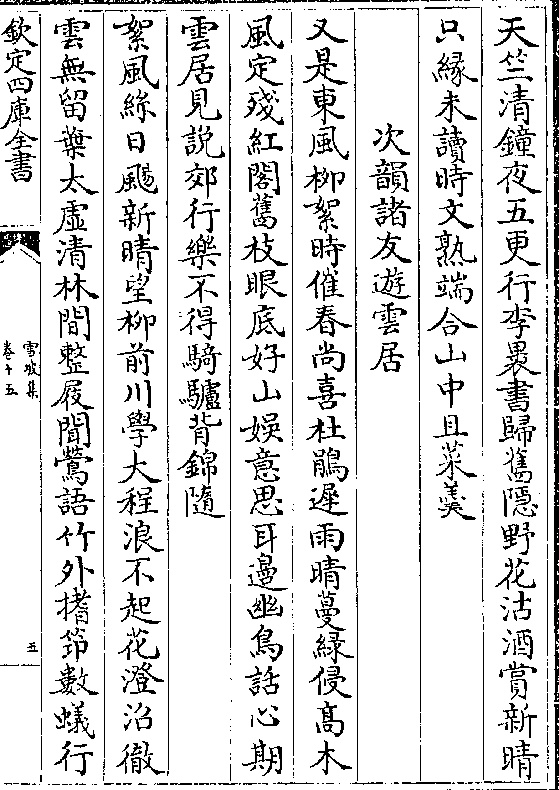 天竺清鐘夜五更行李裹書歸舊隱野花沽酒賞新晴
只縁未讀時文熟端合山中且菜羹
次韻諸友遊雲居
又是東風柳絮時催春尚喜杜鵑遲雨晴蔓緑侵高木
風定殘紅閣舊枝眼底好山娛意思耳邊幽鳥話心期
雲居見説郊行樂不得騎驢背錦隨
絮風絲日颺新晴望柳前川學大程浪不起花澄沼徹
雲無留葉太虛清林間整屐聞鶯語竹外搘笻數蟻行
欽定四庫全書
雪坡集
卷十五
五